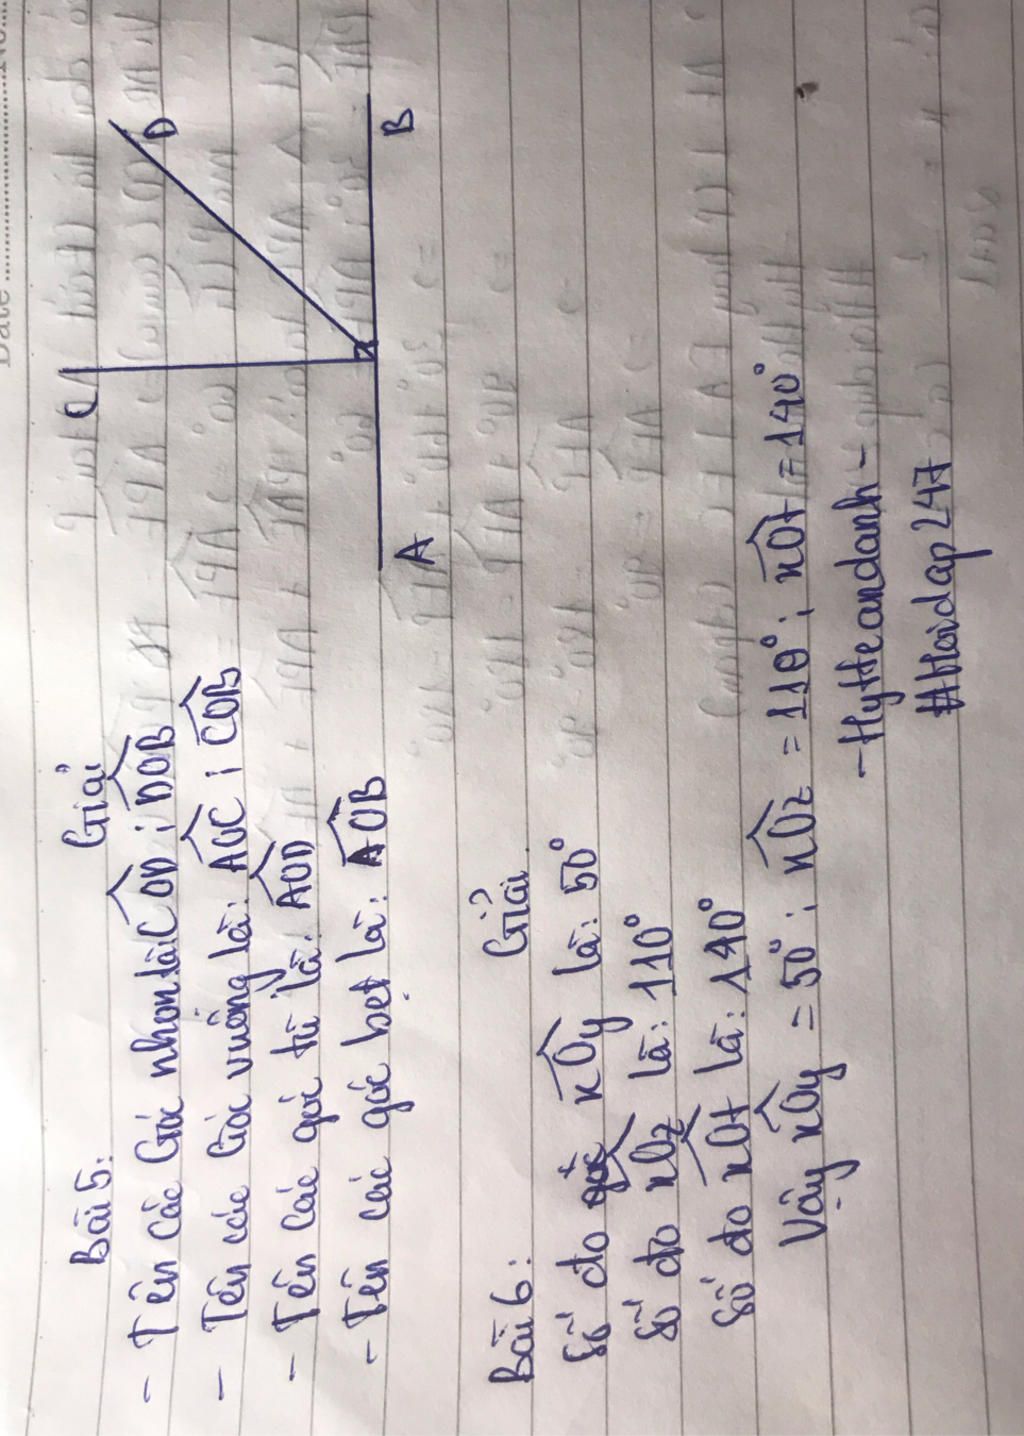 Date
No
Bài 5:
Giải
- Tên các Góc nhọn là COD ; DOB
- Tên các Góc vuông là: AOC ; COB
- Tên các góc tù là: AOD
- Tên các góc bẹt là: AOB
C
D
A
B
Bài 6:
Giải
Số đo góc xOy là: 50°
Số đo xOz là: 110°
Số đo xOt là: 140°
Vậy xOy = 50° ; xOz = 110° ; xOt = 140°
- Hytteandanh -
#Hoidap247